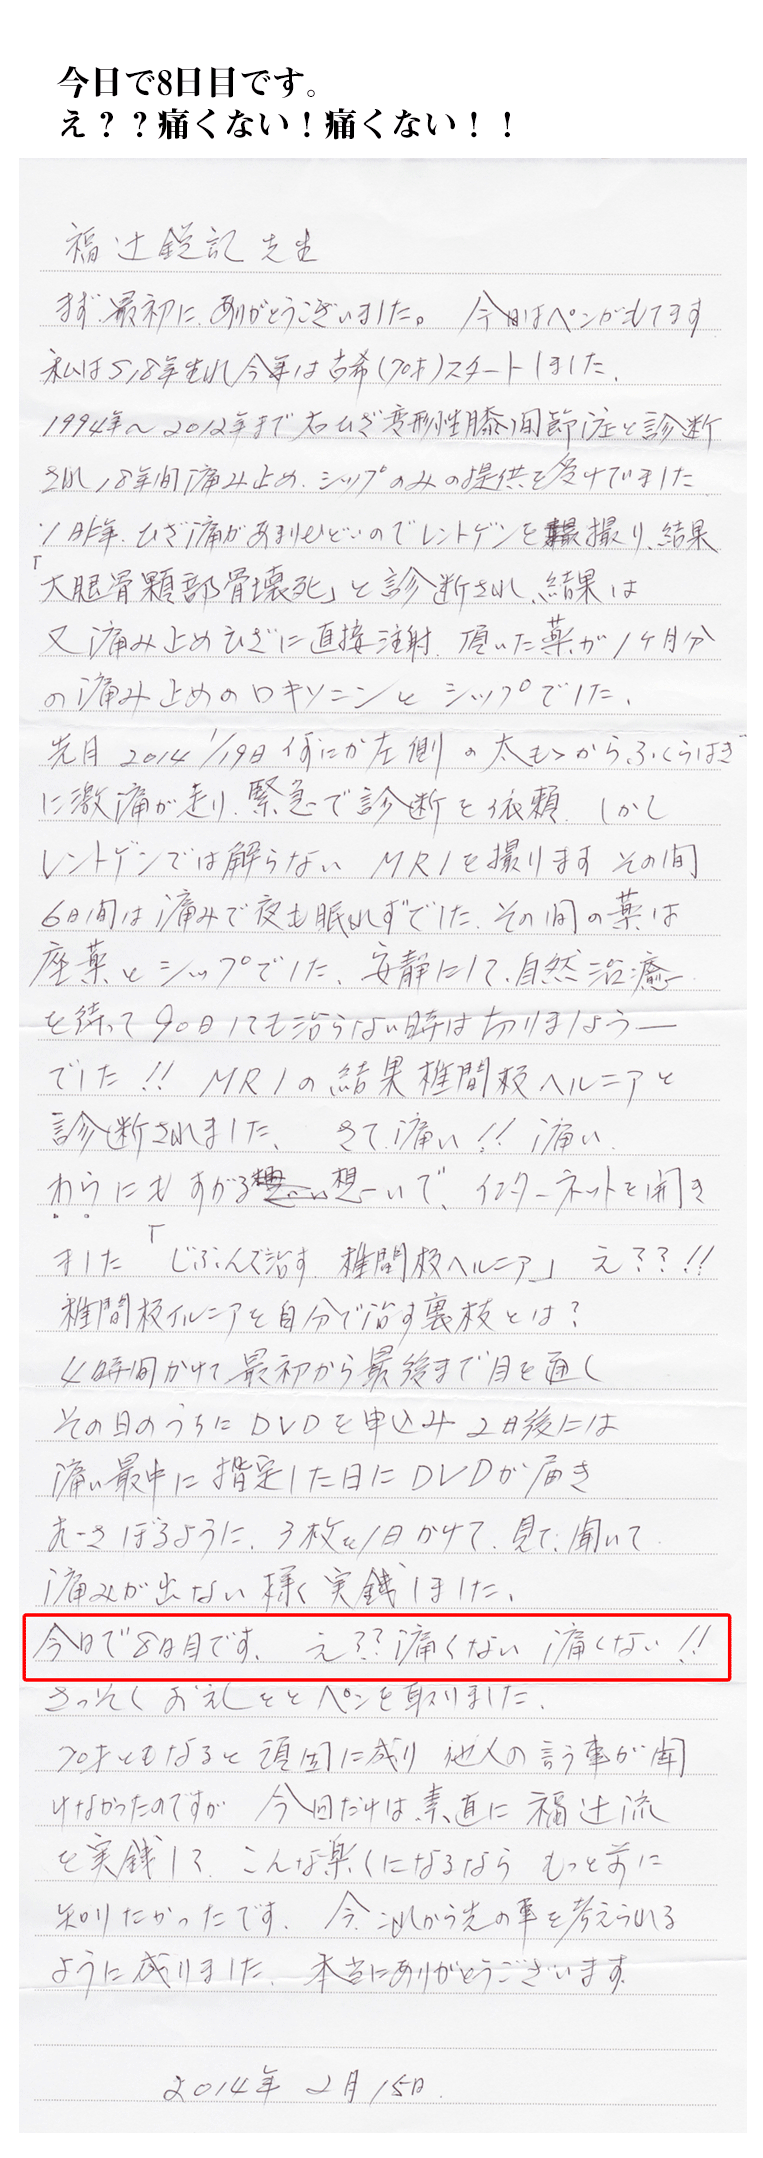 今日で8日目です。
え？？痛くない！痛くない！！
福辻鋭記先生
まず最初に、ありがとうございました。 今日はペンがもてます
私はS18年生れ今年は古希(70才)スタートしました、
1994年～2012年まで右ひざ変形性膝間節症と診断
され18年間痛み止め、シップのみの提供を受けていました
1昨年、ひざ痛があまりひどいのでレントゲンを撮り、結果
「大腿骨顆部骨壊死」と診断され、結果は
又痛み止めひざに直接注射、頂いた薬が1ヶ月分
の痛み止めのロキソニンとシップでした、
先月2014 1/19日 左側の太ももからふくらはぎ
に激痛が走り、緊急で診断を依頼、しかし
レントゲンでは解らない MRIを撮ります その間
6日間は痛みで夜も眠れずでした、その間の薬は
座薬とシップでした、安静にして、自然治癒
を待って90日しても治らない時は切りましょうー
でした!! MRIの結果椎間板ヘルニアと
診断されました、 さて痛い!! 痛い、
わらにもすがる想いで、インターネットを開き
ました「じぶんで治す 椎間板ヘルニア」 え??!!
椎間板ヘルニアを自分で治す裏技とは?
4時間かけて最初から最後まで目を通し
その日のうちにDVDを申込み 2日後には
痛い最中に指定した日にDVDが届き
むさぼるように、3枚を1日かけて、見て、聞いて
痛みが出ない様に実銭しました、
今日で8日目です、 え??痛くない 痛くない!!
さっそくお礼をとペンを取りました、
70才ともなると頑固に成り 他人の言う事が聞
けなかったのですが 今回だけは素直に福辻流
を実銭して、こんな楽になるなら もっと前に
知りたかったです、 今、これから先の事を考えられる
ように成りました、本当にありがとうございます
2014年2月15日、